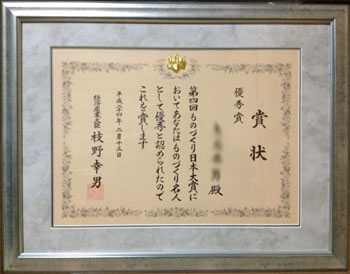 賞状
優秀賞
殿
第四回ものづくり日本大賞に
おいてあなたはものづくり名人
として優秀と認められたので
これを賞します
平成二十四年二月十五日
経済産業大臣 枝野幸男